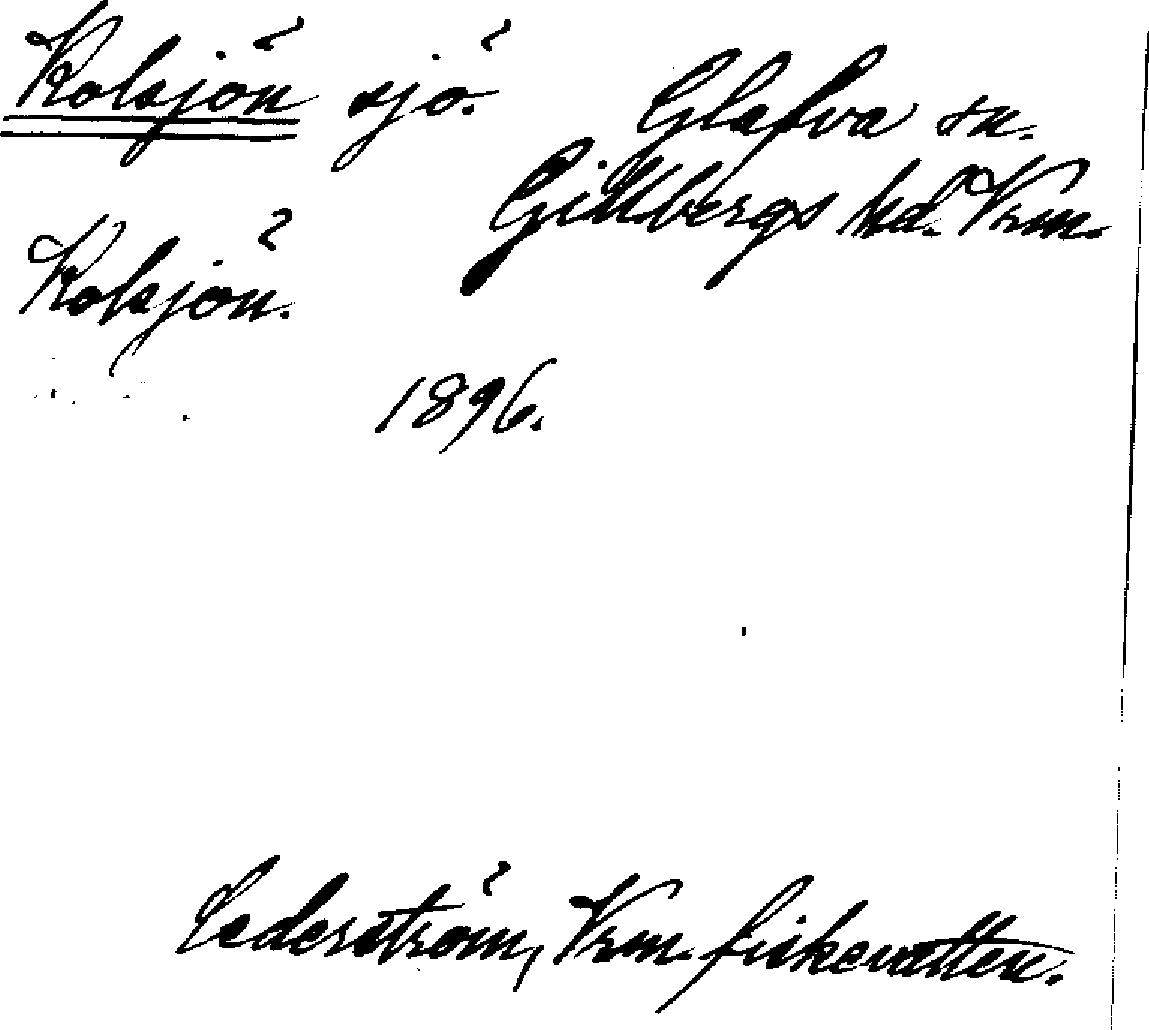 Kolsjön sjö.
Glafva sn.
Gillbergs hd. Vrm.
Kolsjön.
1896.
Cederström, Vrm. fiskevatten.